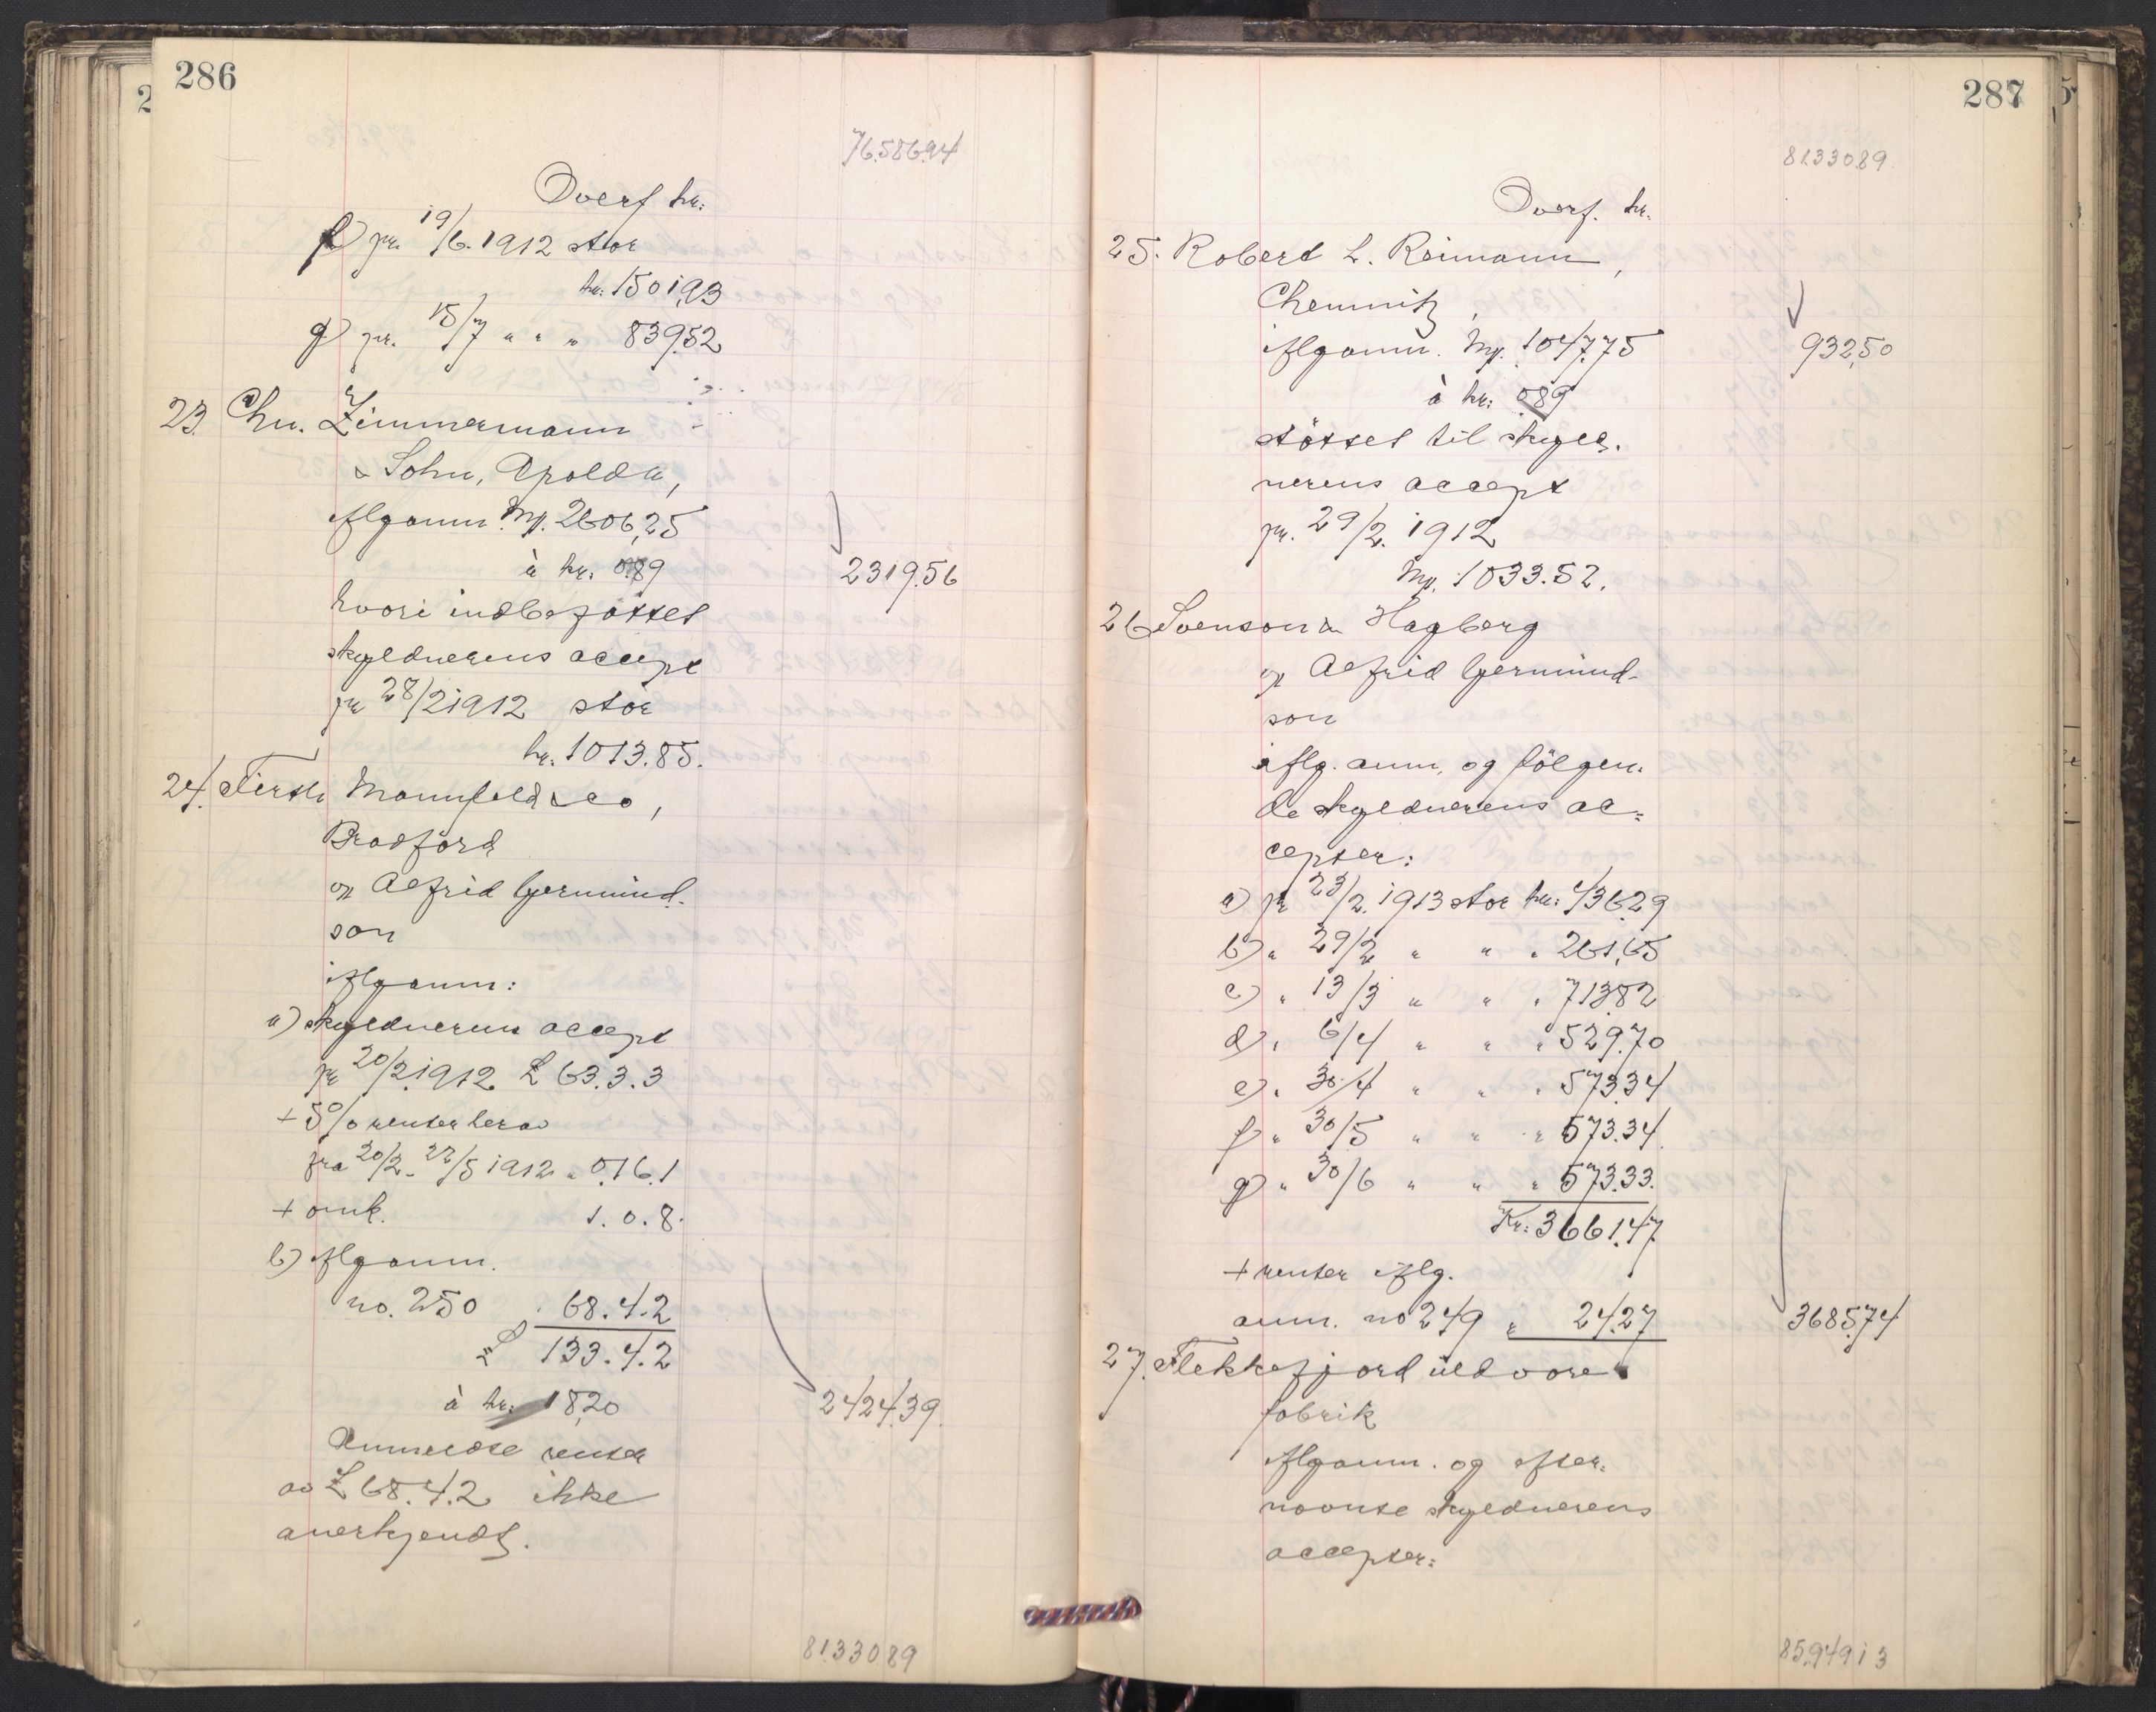 286
76.586.94
Overf kr.
f) pr. 19/6. 1912 stor
kr: 1501,93
g) pr. 15/7 " " " 839.52
23. Chr. Zimmermann
& Sohn, Apolda,
iflg anm. Mk. 2606,25
à kr. 0.89 2319.56
hvori indbefattet
skyldnerens accept
pr 28/2 1912 stor
kr. 1013.85.
24. Firth Mannfeld & Co,
Bradford
v/ Alfrid Germund-
son
iflg anm:
a) skyldnerens accept
pr 20/2.1912 £ 63.3.3
+ 5% renter herav
fra 20/2 - 22/5 1912 " 0.16.1
+ omk. 1.0.8.
b) iflg anm.
no. 250 " 68.4.2
£ 133.4.2
à kr: 18,20 2424.39.
Anmeldte renter
av £ 68.4.2 ikke
anerkjendt.
81.330.89
287
81.330.89
Overf. kr.
25. Robert L. Reimann,
Chemnitz,
iflg anm. Mk. 1047.75 932,50
à kr: 0.89
støttet til skyld-
nerens accept
pr. 29/2. 1912
Mk. 1033.52.
26 Svenson & Hagberg
v/ Alfrid Germund-
son
iflg. anm. og følgen-
de skyldnerens ac-
cepter:
a) pr 23/2. 1913 stor kr: 436.29
b) " 29/2 " " " 261,65
c) " 13/3 " " " 713.82
d) " 6/4 " " " 529.70
e) " 30/4 " " " 573.34
f) " 30/5 " " " 573.34
g) " 30/6 " " " 573.33.
Kr: 3661.47
+ renter iflg.
anm. no 249 " 24.27 3685.74
27. Flekkefjord uldvare
fabrik
iflg anm. og efter-
nævnte skyldnerens
accepter:
85.949.13